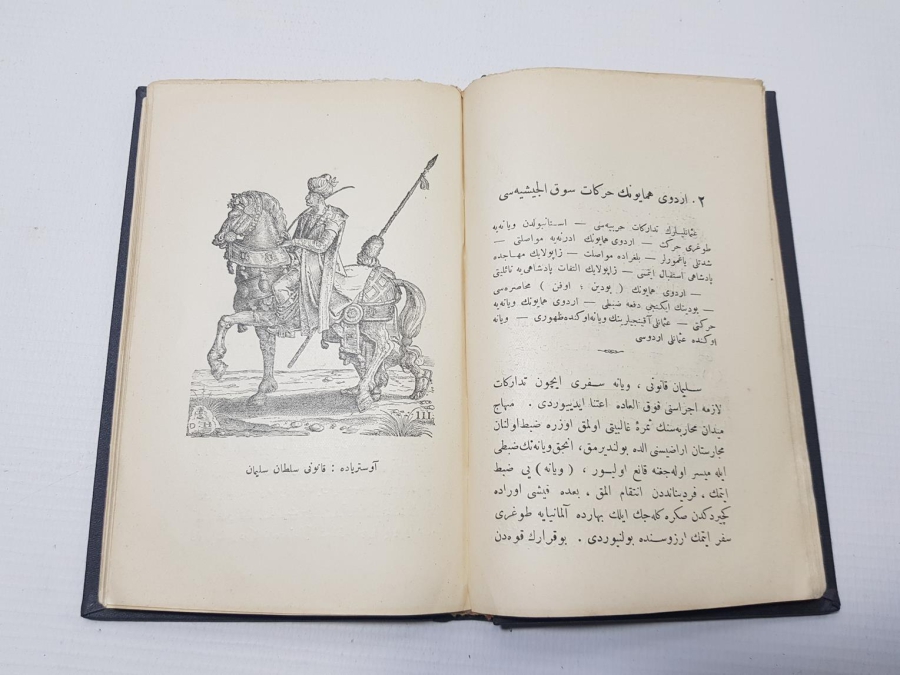 ٢. اردوی همایونك حركات سوق الجیشیه‌سی
عثمانلیلرك تداركات حربیه‌سی — استانبولدن ویانه‌یه
طوغری حركت — اردوی همایونك ادرنه‌یه مواصلتی —
شدتلی یاغمورلر — بلغراده مواصلت — زاپولیانك مهاجده
پادشاهی استقبال ایتمسی — زاپولیانك التفات پادشاهی‌یه نائلیتی
— اردوی همایونك ( بودین ؛ اوفن ) محاصره‌سی
— بودینك ایكنجی دفعه ضبطی — اردوی همایونك ویانه‌یه
حركتی — عثمانلی آقینجیلرینك ویانه اوكنده ظهوری — ویانه
اوكنده عثمانلی اردوسی
سلیمان قانونی ، ویانه سفری ایچون تداركات
لازمه اجراسنی فوق العاده اعتنا ایدیوردی . مهاج
میدان محاربه‌سنك ثمرهٔ غالبیتی اولمق اوزره ضبط اولنان
مجارستان اراضیسنی الده بولندیرمق ، انجق ویانه‌نك ضبطی
ایله میسر اوله‌جغنه قانع اولیور ، ( ویانه ) یی ضبط
ایتمك ، فردیناندن انتقام المق ، بعده قیشی اوراده
كچیردكدن صكره كله‌جك ایلك بهارده آلمانیایه طوغری
سفر ایتمك ارزوسنده بولنیوردی . بوقرارك قوه‌دن
III
آوستریاده : قانونی سلطان سلیمان